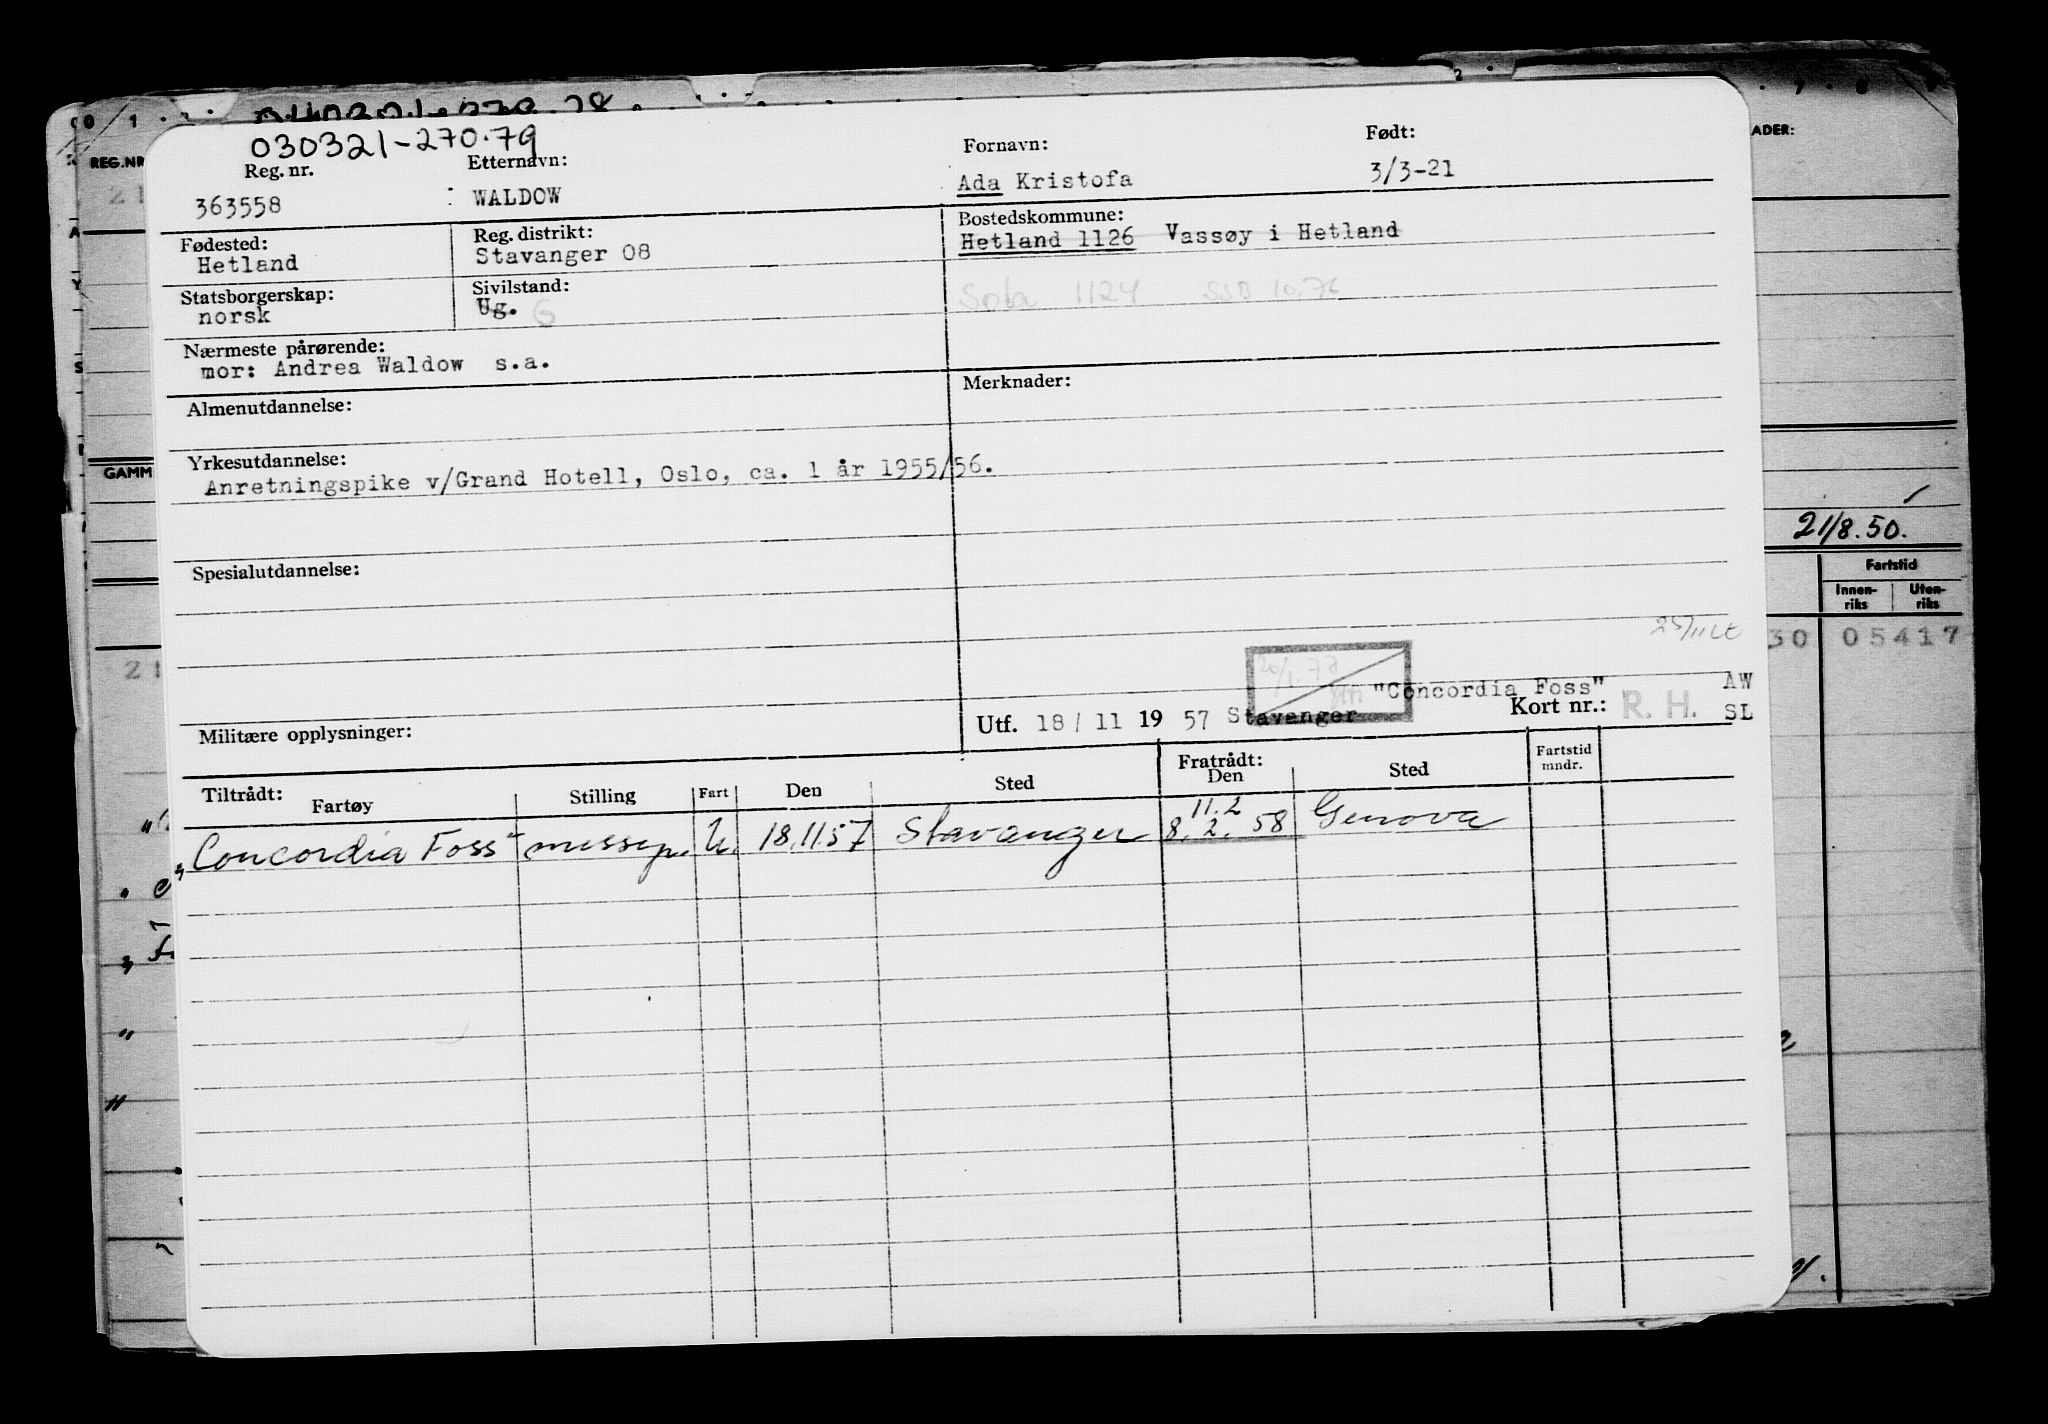 030321-270.79
Reg. nr. Etternavn: Fornavn: Født:
363558 : WALDOW Ada Kristofa 3/3-21
Fødested: Reg. distrikt: Bostedskommune:
Hetland Stavanger 08 Hetland 1126 Vassøy i Hetland
Statsborgerskap: Sivilstand: Sola 1124 SSB 10.76
norsk Ug. G
Nærmeste pårørende:
mor: Andrea Waldow s.a.
Almenutdannelse: Merknader:
Yrkesutdannelse:
Anretningspike v/Grand Hotell, Oslo, ca. 1 år 1955/56.
Spesialutdannelse:
"Concordia Foss" AW
Militære opplysninger: Utf. 18/11 19 57 Stavanger Kort nr.: R. H. SL
Tiltrådt: Fratrådt:
Fartøy Stilling Fart Den Sted Den Sted Fartstid mndr.
11.2
"Concordia Foss" messep. U. 18.11.57 Stavanger 8.2.58 Genova
REG.NR
GAMM
ADER:
21/8.50.
Fartstid
Innen-riks Uten-riks
30 05417